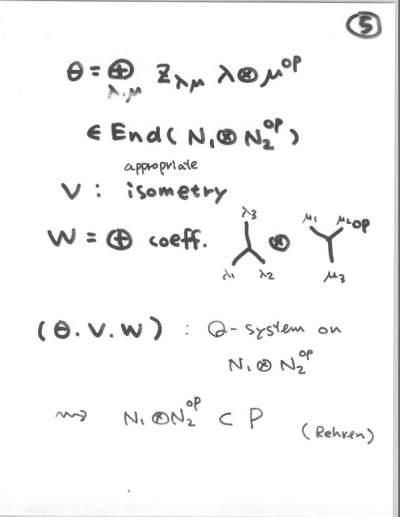 5
θ = ⊕ Z_λμ λ⊗μ^op
λ.μ
∈ End(N₁⊗N₂^op)
appropriate
V : isometry
W = ⊕ coeff. λ₃ λ₁ λ₂ ⊗ μ₁ μ₂ op μ₃
(θ.V.W) : Q-system on
N₁⊗N₂^op
⇝ N₁⊗N₂^op ⊂ P
(Rehren)